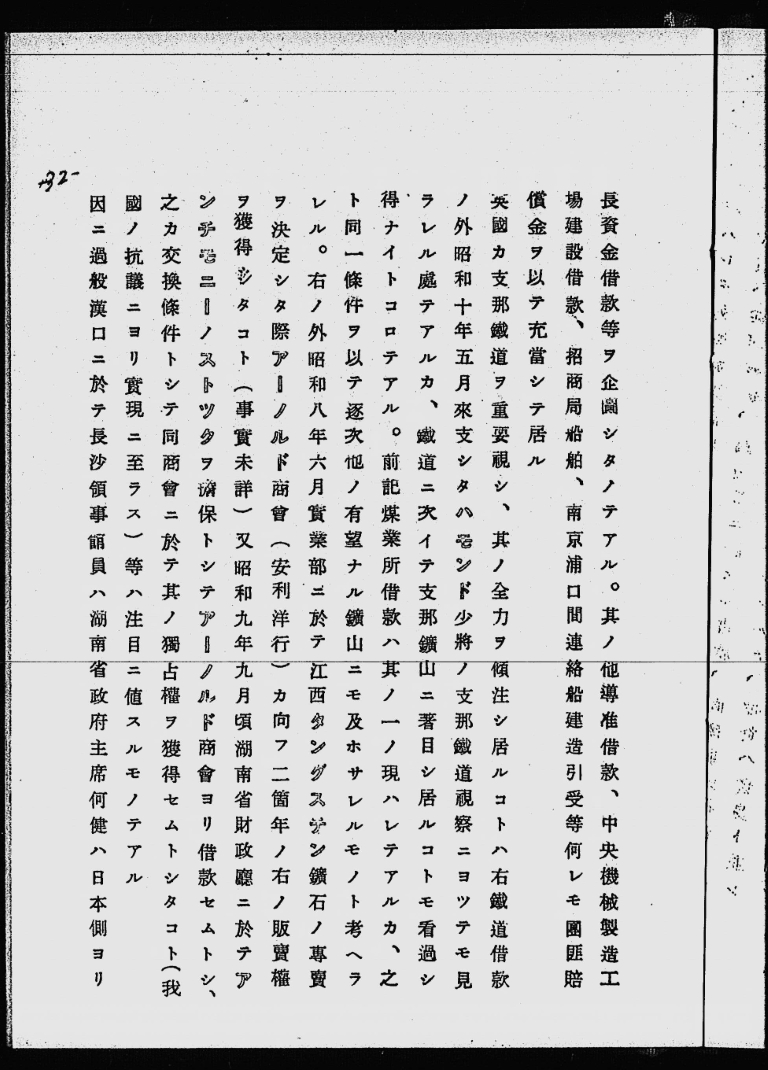 長資金借款等ヲ企圖シタノテアル。其ノ他導准借款、中央機械製造工
場建設借款、招商局船舶、南京浦口間連絡船建造引受等何レモ團匪賠
償金ヲ以テ充當シテ居ル
英國カ支那鐵道ヲ重要視シ、其ノ全力ヲ傾注シ居ルコトハ右鐵道借款
ノ外昭和十年五月來支シタハモンド少將ノ支那鐵道視察ニヨツテモ見
ラレル處テアルカ、鐵道ニ次イテ支那鑛山ニ著目シ居ルコトモ看過シ
得ナイトコロテアル。前記煤業所借款ハ其ノ一ノ現ハレテアルカ、之
ト同一條件ヲ以テ逐次他ノ有望ナル鑛山ニモ及ホサレルモノト考ヘラ
レル。右ノ外昭和八年六月實業部ニ於テ江西タングステン鑛石ノ專賣
ヲ決定シタ際アーノルド商會（安利洋行）カ向フ二箇年ノ右ノ販賣權
ヲ獲得シタコト（事實未詳）又昭和九年九月頃湖南省財政廳ニ於テア
ンチモニーノストツクヲ擔保トシテアーノルド商會ヨリ借款セムトシ、
之カ交換條件トシテ同商會ニ於テ其ノ獨占權ヲ獲得セムトシタコト（我
國ノ抗議ニヨリ實現ニ至ラス）等ハ注目ニ値スルモノテアル
因ニ過般漢口ニ於テ長沙領事館員ハ湖南省政府主席何健ハ日本側ヨリ
-32-